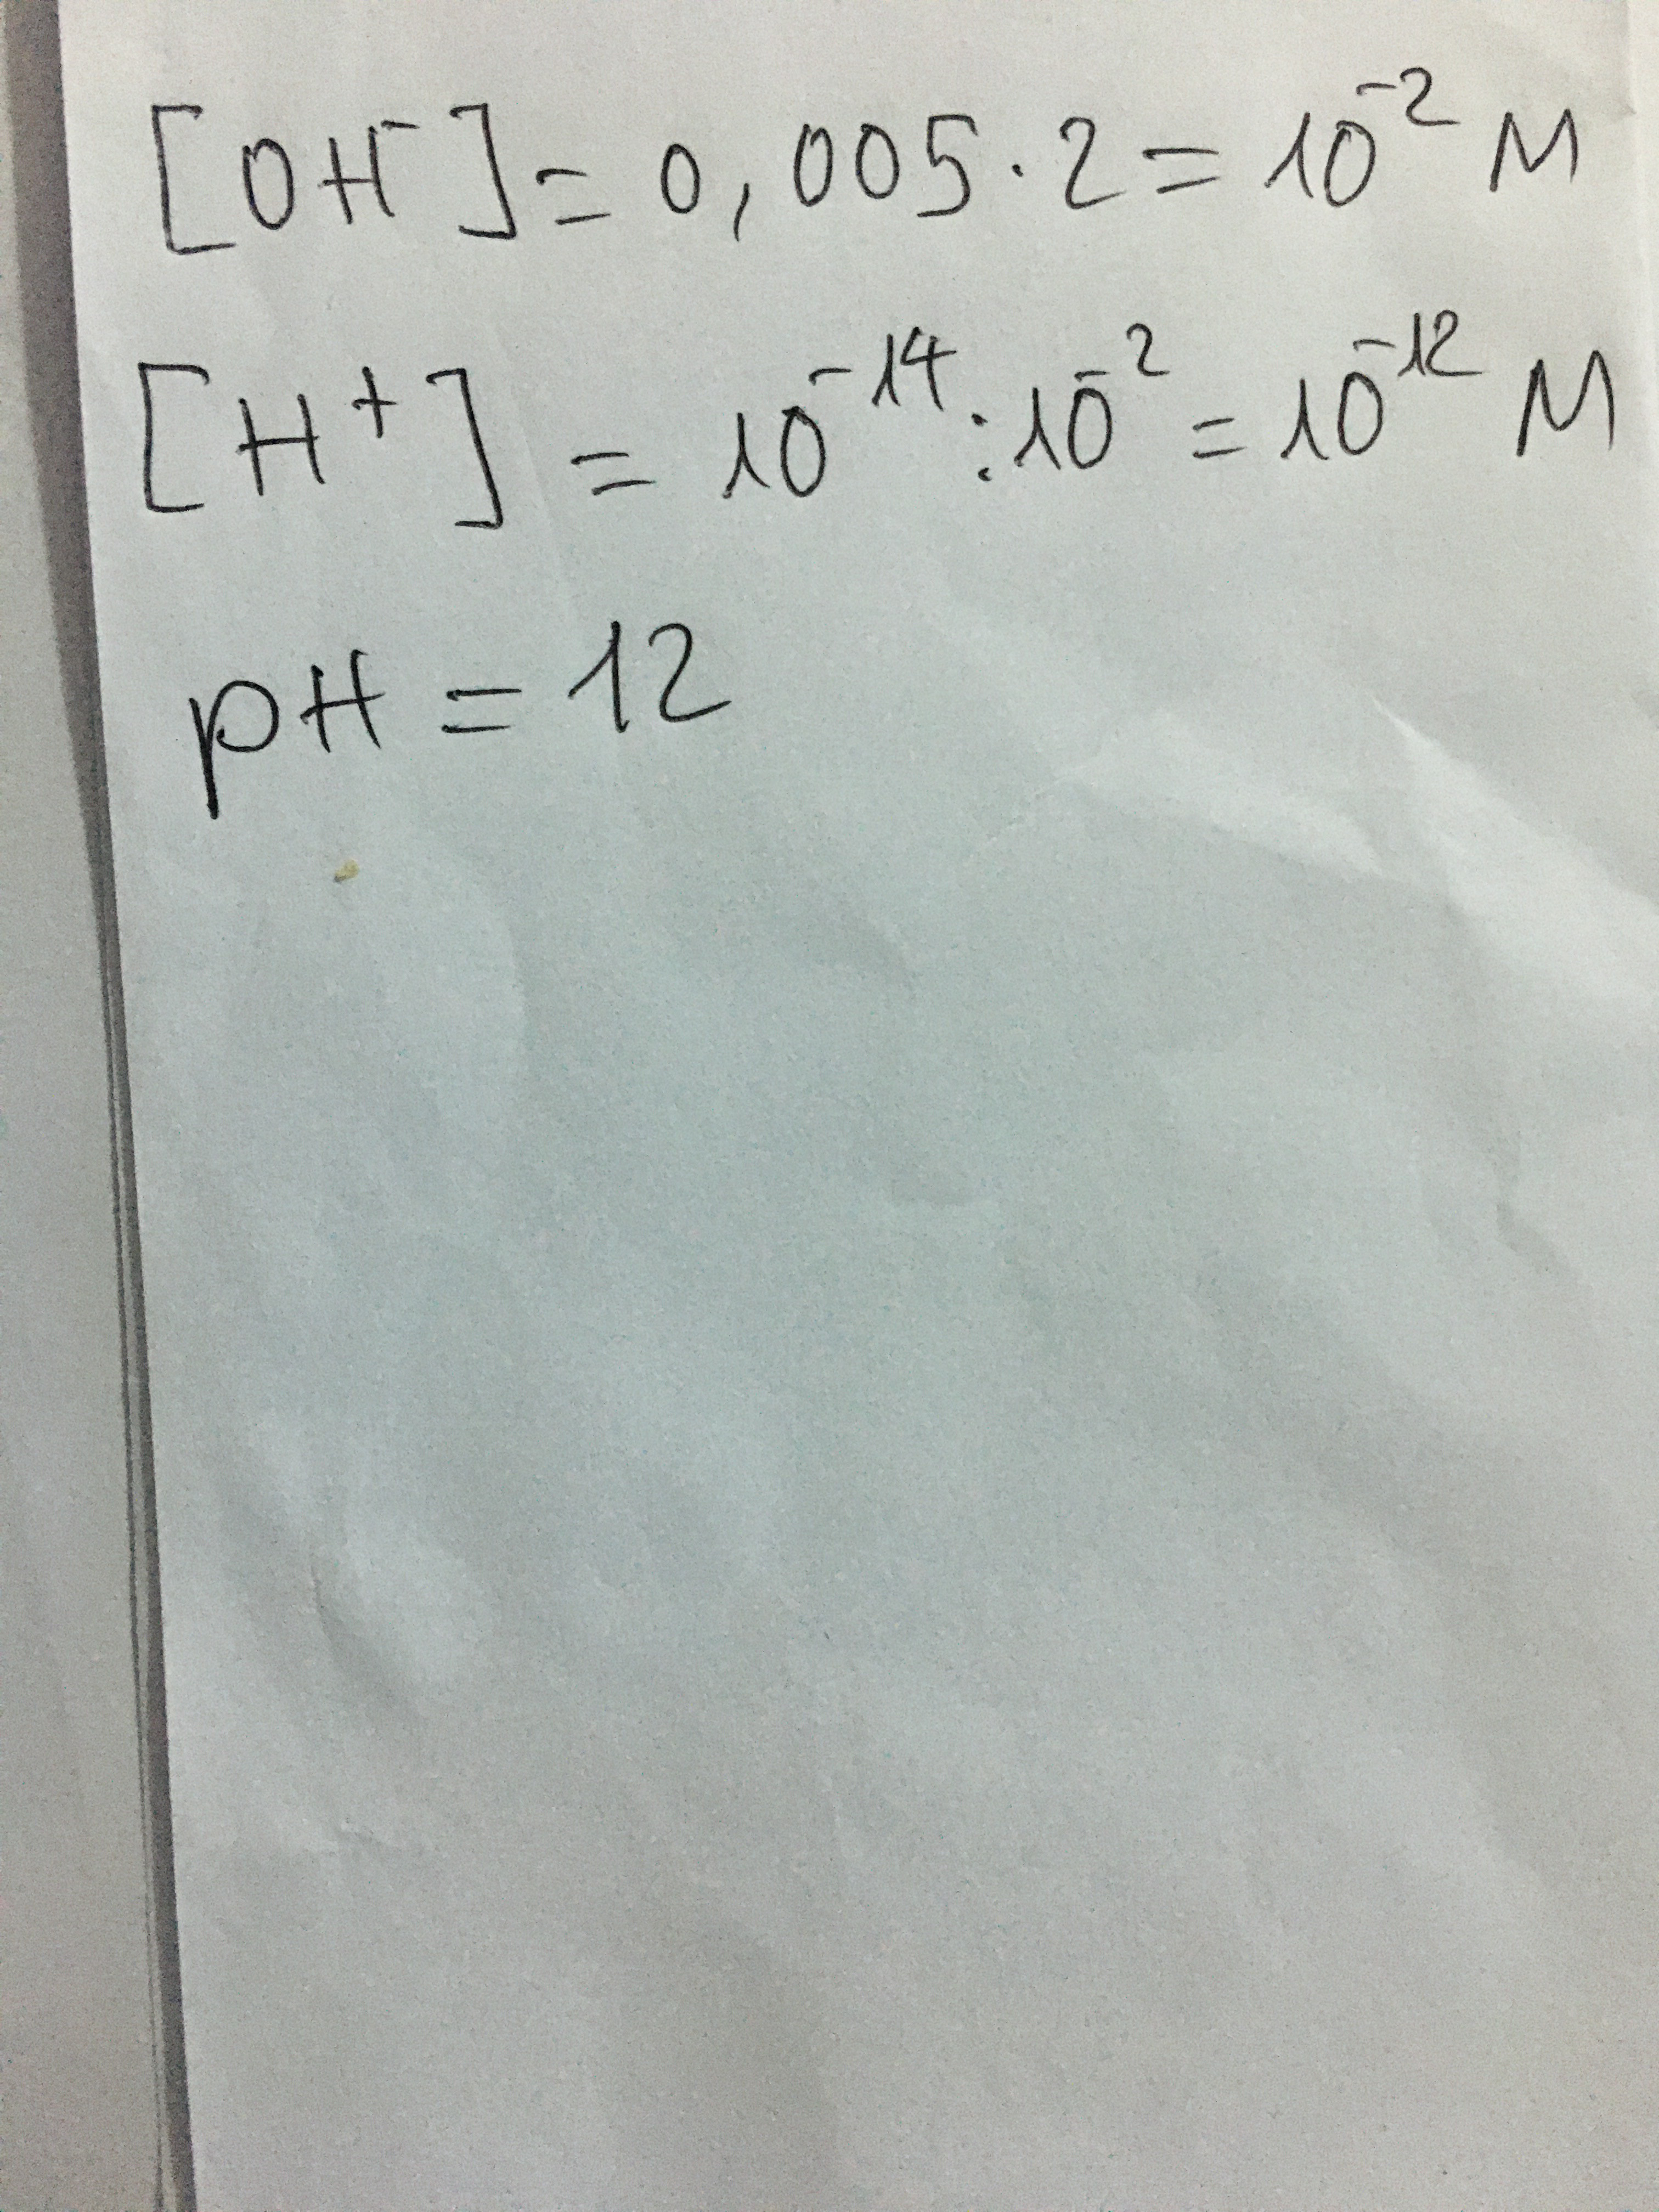 [OH⁻] = 0,005 · 2 = 10⁻² M
[H⁺] = 10⁻¹⁴ : 10⁻² = 10⁻¹² M
pH = 12